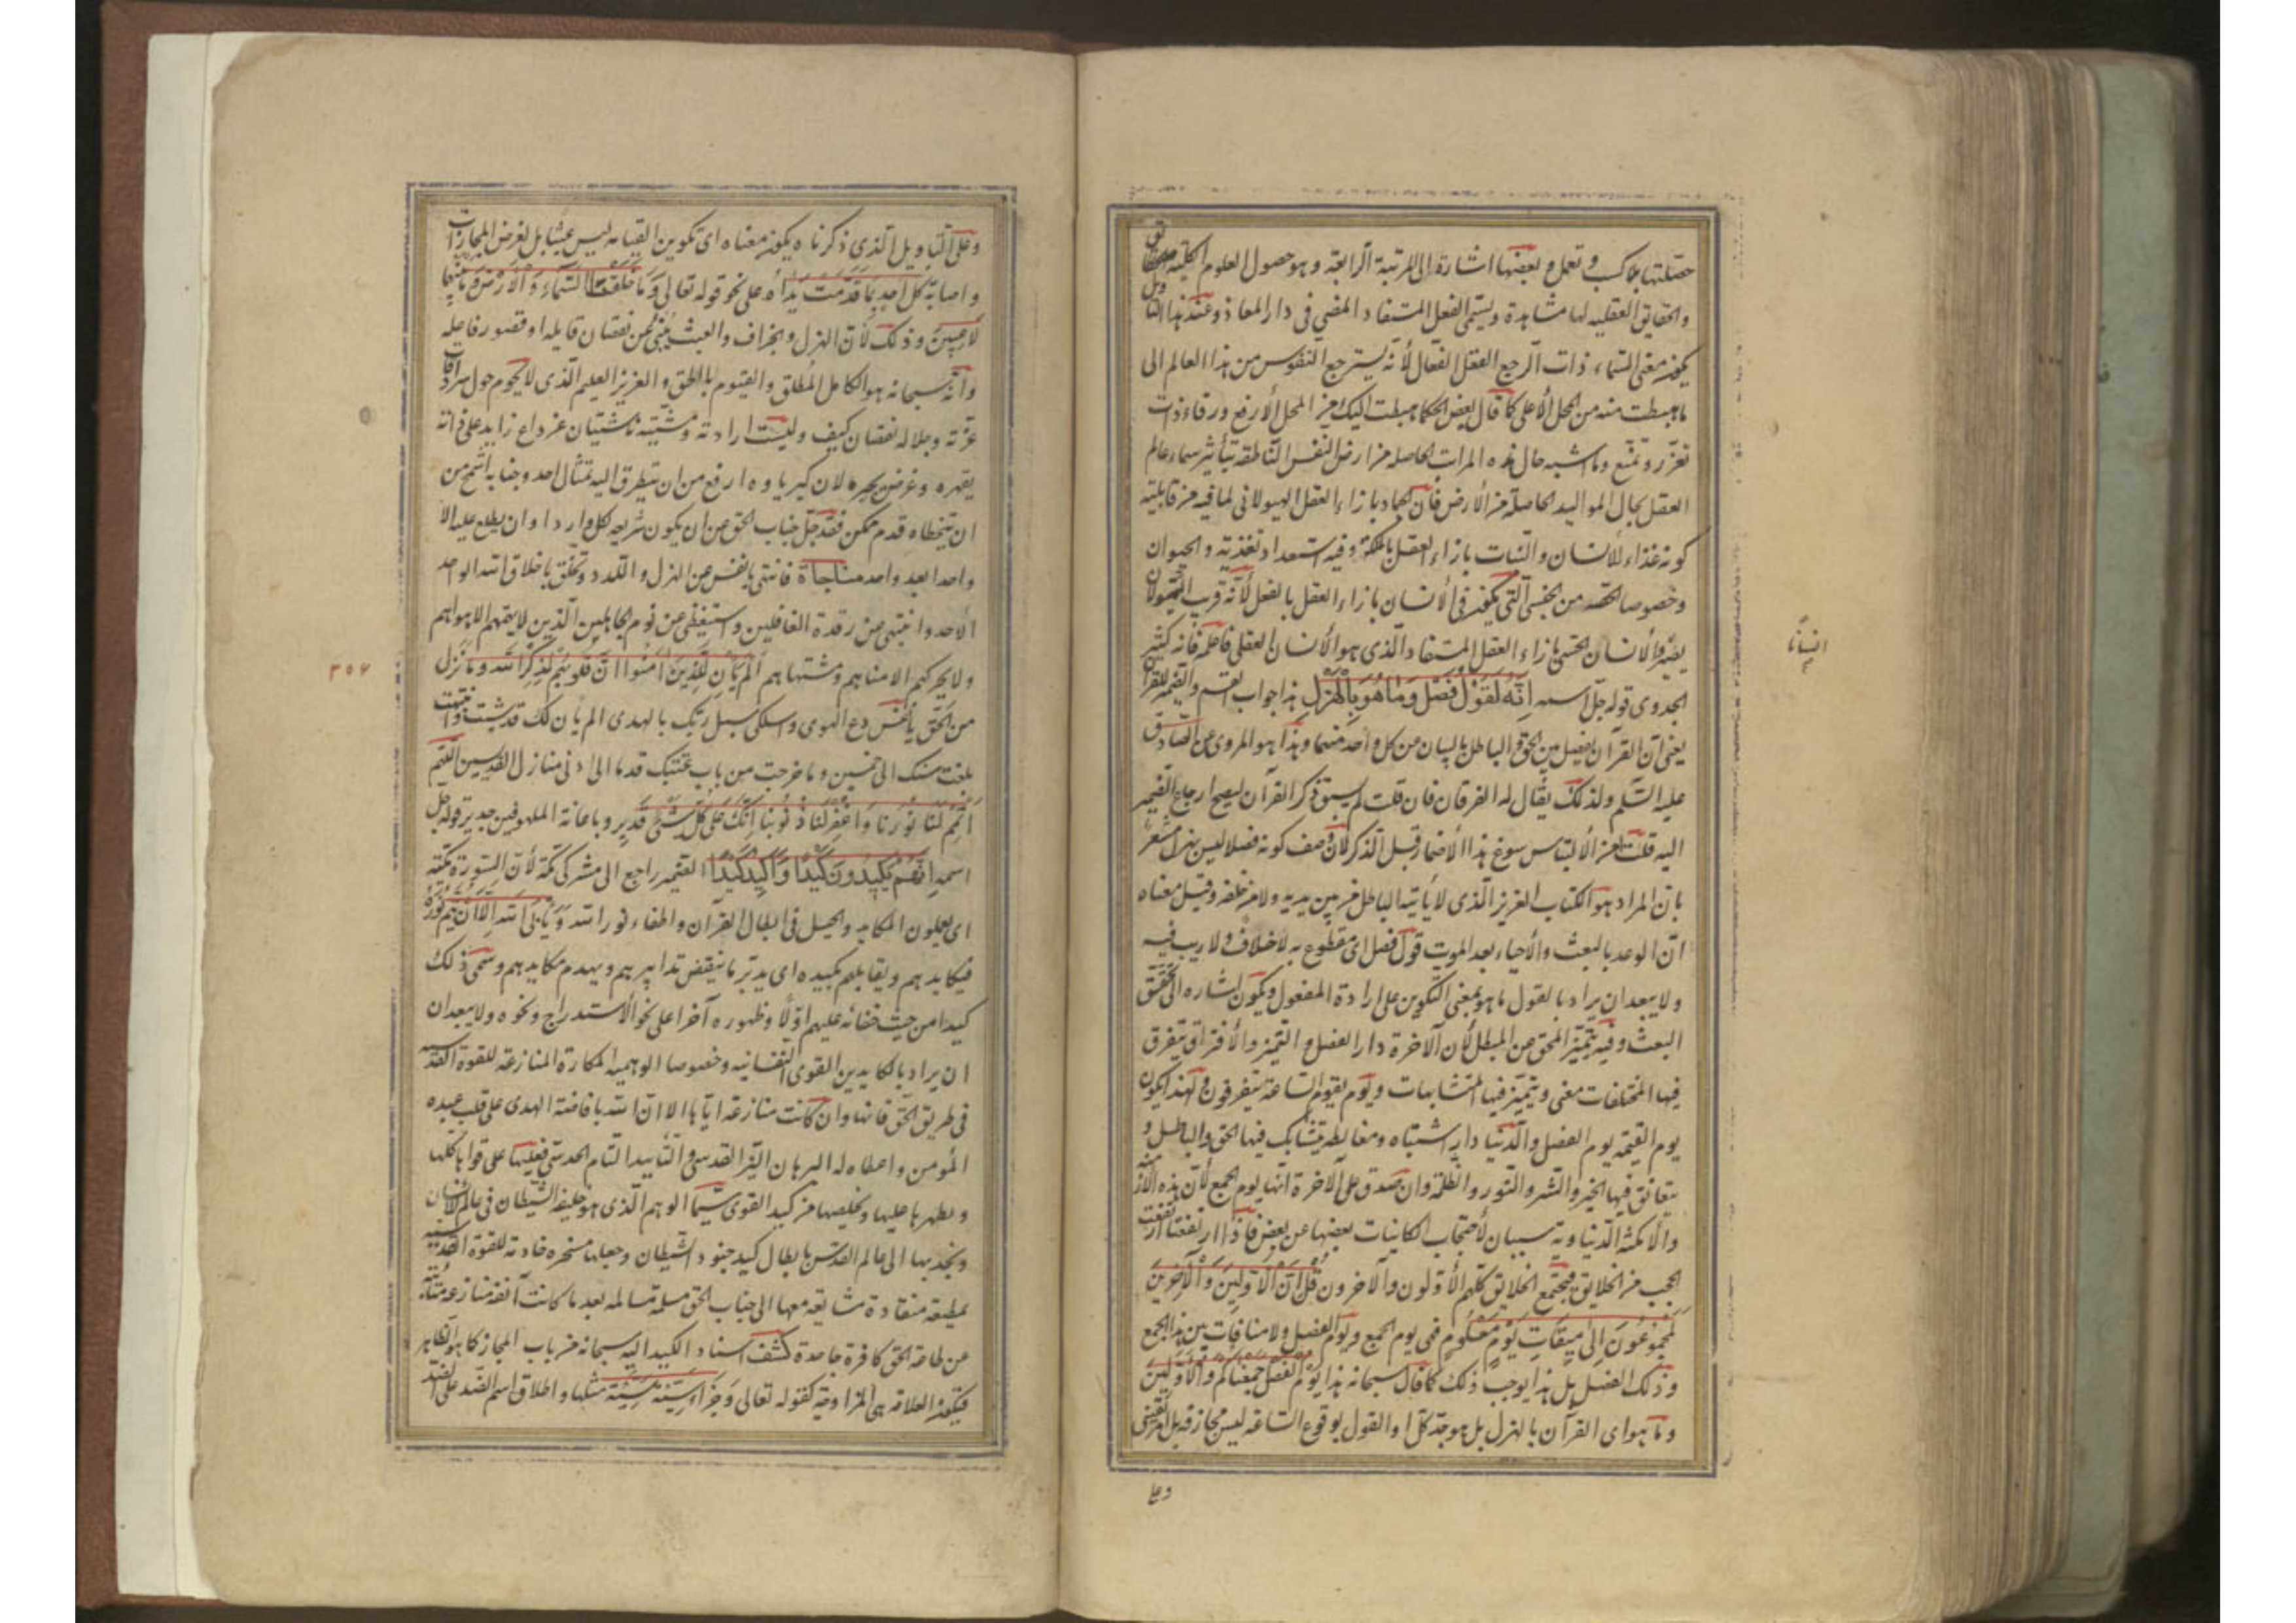 حصلتها بملاكسب وتعمل وبعضها اشارة الى المرتبة الرابعة وهو حصول العلوم الكلية
والحقايق العقليه لها مشاهدة ويسمى الفعل المستفاد المضى فى دار المعاد وعند هذا التا
ويل
يكون معنى السماء ذات الرجع العقل الفعال لأنه يسترجع النفوس من هذا العالم الى
ما هبطت منه من المحل الأعلى كما قال بعض الحكما هبطت اليك من المحل الأرفع ورقاء ذات
تعزز وتمنع وما اشبه حال هذه المراتب الحاصله من ارض النفس الناطقه بتأثير سماء عالم
العقل بحال المواليد الحاصلة من الأرض فان الجماد بازاء العقل الهيولانى لما فيه من قابلية
كونه غذاء للانسان والنبات بازاء العقل بالملكة وفيه استعداد تغذيته والحيوان
وخصوصا الحصه من الجنس التى يكون فى الأنسان بازاء العقل بالفعل لأنه قريب
يصير والأنسان الحسى بازاء العقل المستفاد الذى هو الأنسان العقلى فاعلمه فانه كثير
انسانا
الجدوى قوله جل اسمه إنّه لقول فصل وما هو بالهزل هذا جواب القسم والضمير للقرآن
يعنى ان القرآن يفصل بين الحق والباطل بالبيان من كل واحد منهما وهذا هو المروى عن الصادق
عليه السلم ولذلك يقال له الفرقان فان قلت لم يسبق ذكر القرآن ليصح ارجاع الضمير
اليه قلت امن الألتباس سوغ هذا الأضمار قبل الذكر لأن وصف كونه فصلا ليس بهزل مشعر
بان المراد هو الكتاب العزيز الذى لا يأتيه الباطل من بين يديه ولا من خلفه وقيل معناه
ان الوعد بالبعث والأحياء بعد الموت قول فصل اى مقطوع به لا خلاف ولا ريب فيه
ولا يبعد ان يراد بالقول ما هو بمعنى التكوين على ارادة المفعول ويكون اشاره الى تحقق
البعث وفيه يتميز المحق عن المبطل لأن الآخرة دار الفصل والتميز والأفتراق يتفرق
فيها المختلفات معنى ويتميز فيها المتشابهات ويوم يقوم الساعة يتفرقون ولهذا يكون
يوم القيمة يوم الفصل والدنيا دار اشتباه ومغالطه يتشابك فيها الحق والباطل و
يتعانق فيها الخير والشر والنور والظلمة وان صدق على الآخرة انها يوم الجمع لأن هذه الأز
منه
والأمكنة الدنياوية سببان لأحتجاب الكاينات بعضها عن بعض فاذا ارتفعتا ارتفعت
الحجب من الخلايق فيجتمع الخلايق كلهم الأولون والآخرون قل ان الأولين والآخرين
لمجموعون الى ميقات يوم معلوم فهى يوم الجمع ويوم الفصل ولا منافات بين هذا الجمع
وذلك الفصل بل هذا يوجب ذلك كما قال سبحانه هذا يوم الفصل جمعناكم والأولين
وما هو اى القرآن بالهزل بل هو جد كل او القول بوقوع الساعه ليس مجازفه بل امر يقينى
وعلى
وعلى التاويل الذى ذكرناه يكون معناه اى تكوين القيامه ليس عبثا بل لغرض المجازات
واصابة كل احد بما قدمت يداه على نحو قوله تعالى وما خلقنا السماء والأرض وما بينهما
لاعبين وذلك لأن الهزل والجزاف والعبث ينبئ عن نقصان قابله او قصور فاعله
وانه سبحانه هو الكامل المطلق والقيوم بالحق والعزيز العليم الذى لا يحوم حول سرادقات
عزته وجلاله نقصان كيف وليست ارادته ومشيته ناشئتان عن داع زايد على ذاته
يقهره وغرض يجبره لان كبرياوه ارفع من ان يتطرق اليه تمثال احد وجنابه اشمخ من
ان يتخطاه قدم ممكن فقد جل جناب الحق عن ان يكون شريعه كل وارد او ان يطلع عليه الا
واحدا بعد واحد مناجاة فانتهى يا نفس عن الهزل واللدد وتخلق باخلاق الله الواحد
الاحد وانتبهى من رقدة الغافلين واستيقظى من نوم الجاهلين الذين لا يقيمهم الا هواهم
ولا يحركهم الا مناهم ومشتهاهم ألم يأن للذين آمنوا ان تخشع قلوبهم لذكر الله وما نزل
٣٥٤
من الحق يا نفس دع الهوى واسلكى سبل ربك بالهدى الم يان لك قد شبت
بلغت سنك الى خمسين وما خرجت من باب عتبتك قدما الى ادنى منازل القديسين اللهم
أتمم لنا نورنا واغفر لنا ذنوبنا انك على كل شئ قدير وباعانة الملهوفين جدير قوله جل
اسمه إنهم يكيدون كيدا وأكيد كيدا الضمير راجع الى مشركى مكة لأن السورة مكية
اى يعملون المكايد والحيل فى ابطال القرآن واطفاء نور الله ويأبى الله الا أن يتم نوره
فيكايدهم ويقابلهم بكيده اى يدبر ما ينقض تدابيرهم ويهدم مكايدهم وسمى ذلك
كيدا من حيث خفائه عليهم اولا وظهوره آخرا على نحو الأستدراج ونحوه ولا يبعد ان
ان يراد بالكايدين القوى النفسانيه وخصوصا الوهميه المكارة المنازعة للقوة القدسيه
فى طريق الحق فانها وان كانت منازعة اياها الا ان الله بافاضة الهدى على قلب عبده
المؤمن واعطاه له البرهان النير القدسى والتأييد التام الحدسى فعليها على قواها كلها
ويظهرها عليها ويخلصها من كيد القوى سيما الوهم الذى هو خليفة الشيطان فى عالم الأنسان
ويجذبها الى عالم القدس بابطال كيد جنود الشيطان وجعلها مسخره خادمة للقوة القدسيه
مطيعة منقادة مشايعه معها الى جناب الحق مسلمة سالمه بعد ما كانت آنفه منازعه
عن طاعة الحق كافرة جاحدة كشف اسناد الكيد اليه سبحانه من باب المجاز كما هو الظاهر
فيكون العلاقه هى المزاوجة كقوله تعالى وجزاء سيئة سيئة مثلها واطلاق اسم الضد على الضد